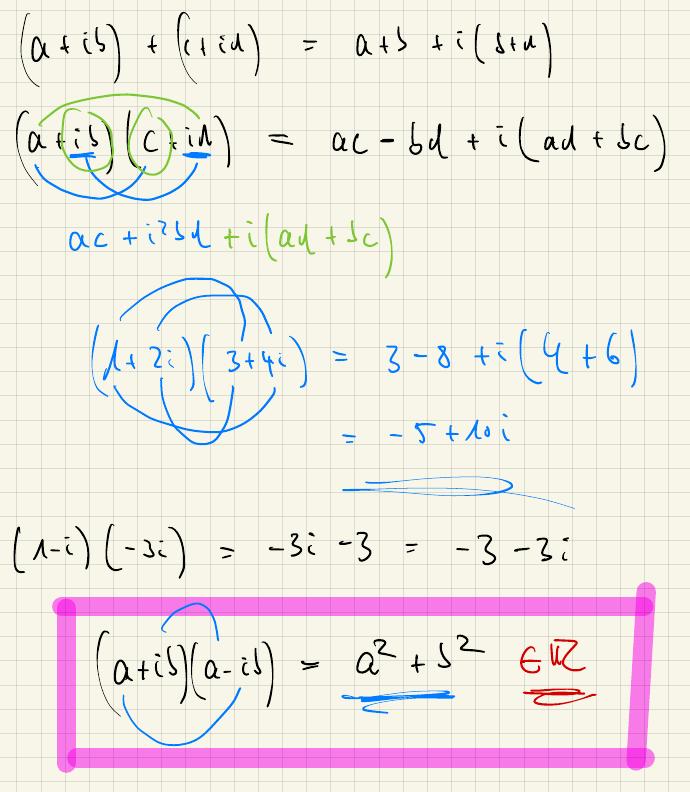 (a + ib) + (c + id) = a + b + i(b + d)
(a + ib)(c + id) = ac - bd + i(ad + bc)
ac + i²bd + i(ad + bc)
(1 + 2i)(3 + 4i) = 3 - 8 + i(4 + 6)
= -5 + 10i
(1-i)(-3i) = -3i - 3 = -3 - 3i
(a + ib)(a - ib) = a² + b² ∈ ℝ